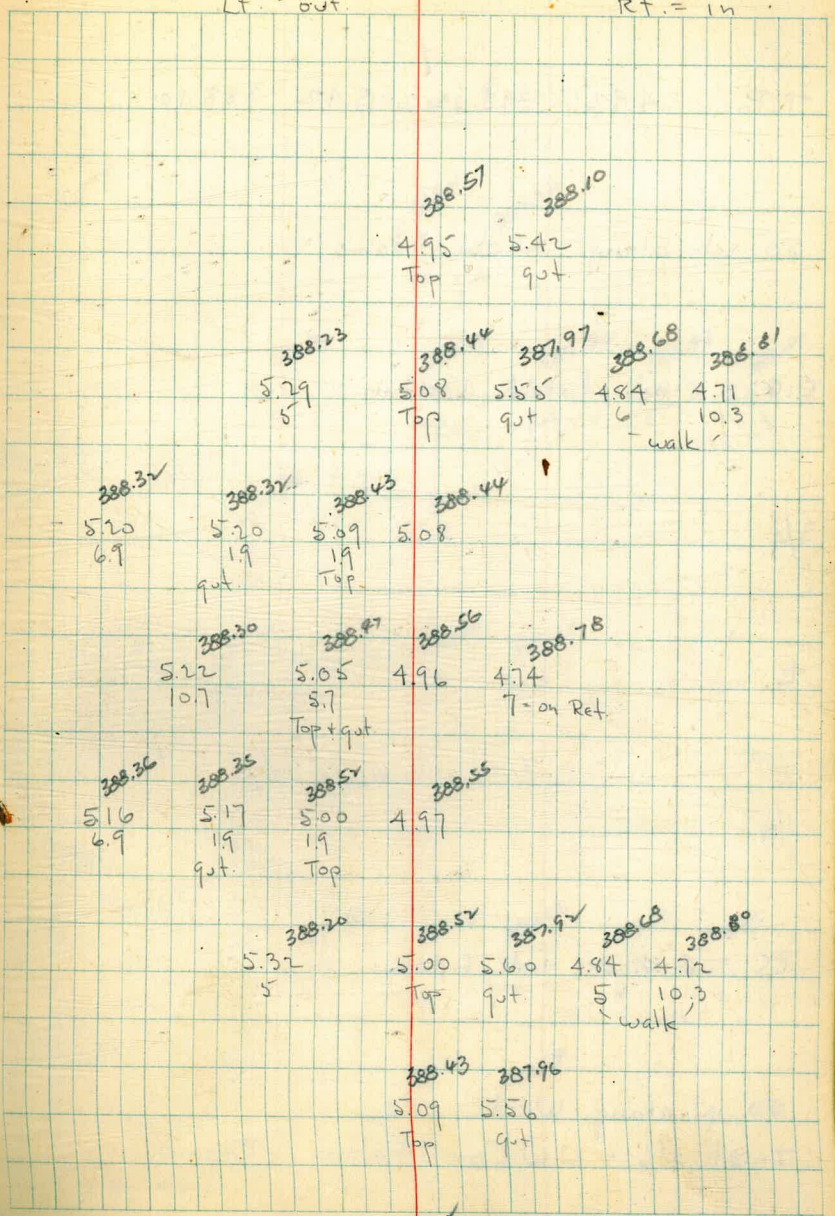 Lt. out. Rt. = in
388.57 388.10
4.95 5.42
Top gut
388.23 388.44 387.97 388.68 388.81
5.29 5.08 5.55 4.84 4.71
5 Top gut 6 10.3
walk
388.32 388.32 388.43 388.44
5.20 5.20 5.09 5.08
6.9 1.9 1.9
gut Top
388.30 388.47 388.56 388.78
5.22 5.05 4.96 4.74
10.7 5.7 7 = on Ret.
Top + gut
388.36 388.35 388.52 388.55
5.16 5.17 5.00 4.97
6.9 1.9 1.9
gut. Top
388.20 388.52 387.92 388.68 388.80
5.32 5.00 5.60 4.84 4.72
5 Top gut 5 10.3
walk
388.43 387.96
5.09 5.56
Top gut